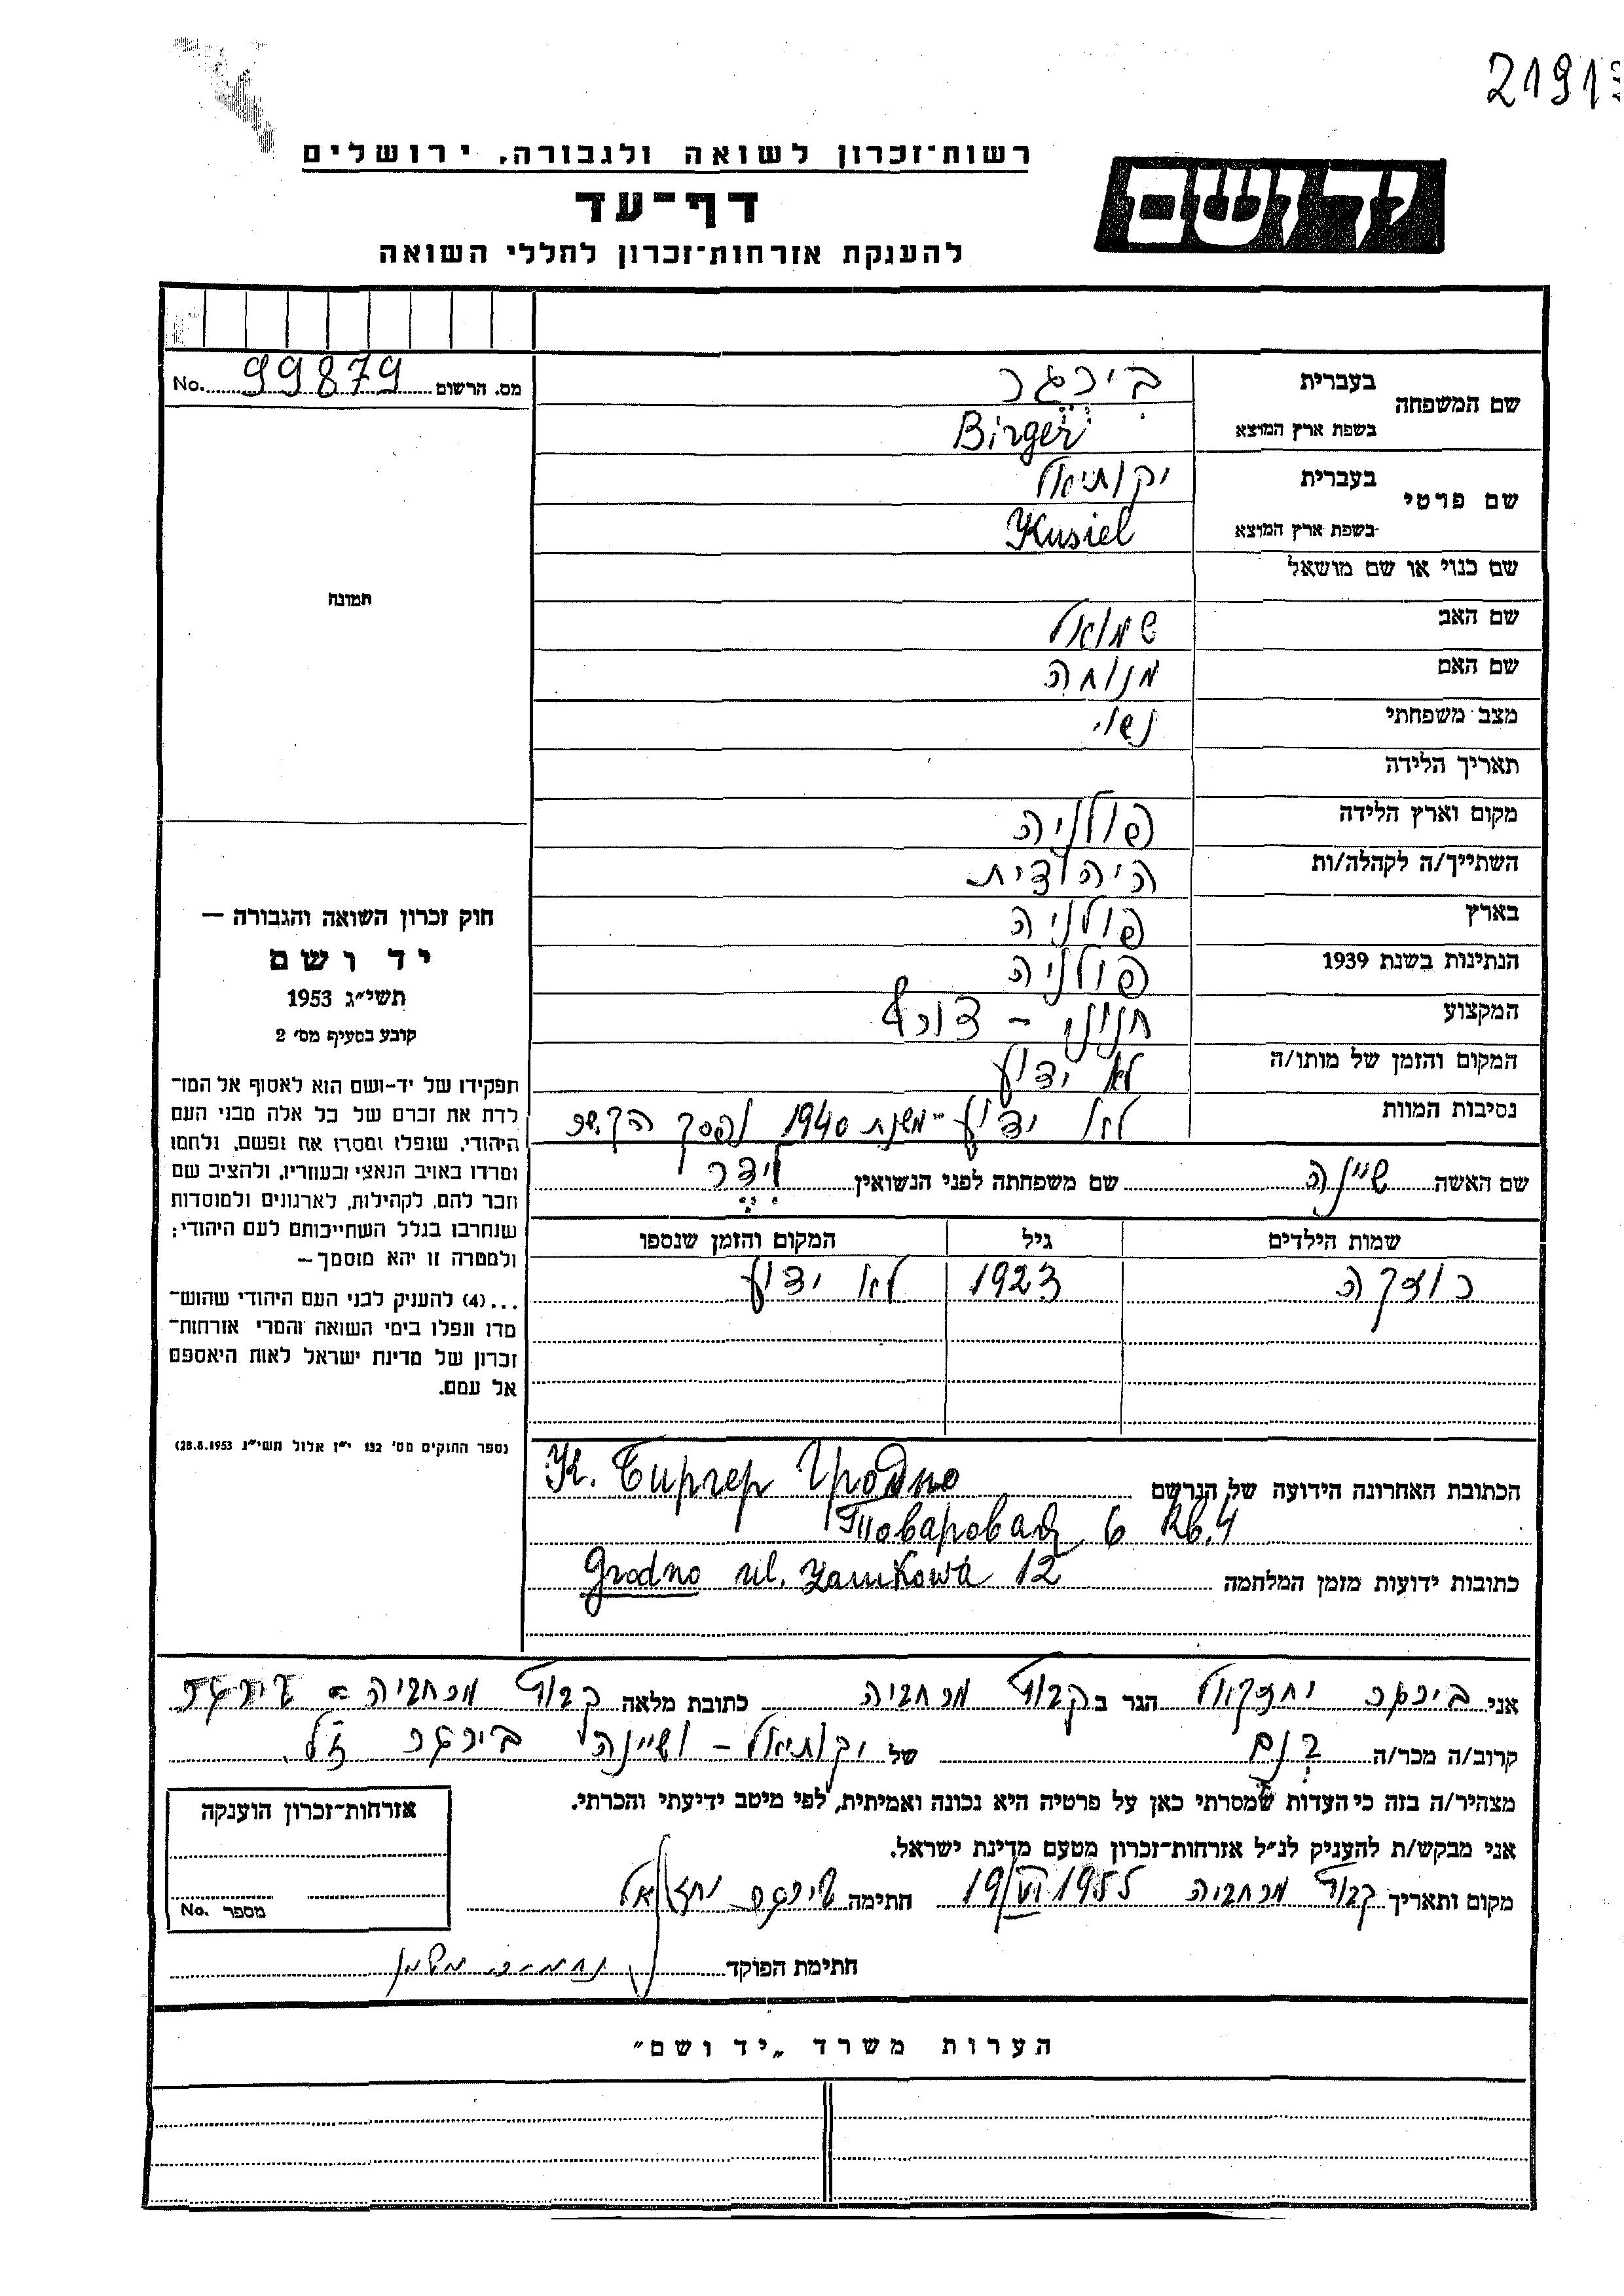 21913
רשות־זכרון לשואה ולגבורה, ירושלים
יד ושם
דף־עד
להענקת אזרחות־זכרון לחללי השואה
No. 99879 מס. הרשום
תמונה
שם המשפחה
בעברית בירגר
בשפת ארץ המוצא Birger
שם פרטי
בעברית יקותיאל
בשפת ארץ המוצא Kusiel
שם כנוי או שם מושאל
שם האב שמואל
שם האם מנוחה
מצב משפחתי נשוי
תאריך הלידה
מקום וארץ הלידה פולניה
השתייך/ה לקהלה/ות היהודית
בארץ פולניה
הנתינות בשנת 1939 פולניה
המקצוע חנוני -
המקום והזמן של מותו/ה לא ידוע
נסיבות המוות לא ידוע - משנת 1940 נפסק הקשר
שם האשה שיינה שם משפחתה לפני הנשואין לידר
שמות הילדים גיל המקום והזמן שנספו
1923 לא ידוע
חוק זכרון השואה והגבורה —
יד ושם
תשי״ג 1953
קובע בסעיף מס׳ 2
תפקידו של יד-ושם הוא לאסוף אל המו־
לדת את זכרם של כל אלה מבני העם
היהודי, שנפלו ומסרו את נפשם, נלחמו
ומרדו באויב הנאצי ובעוזריו, ולהציב שם
וזכר להם, לקהילות, לארגונים ולמוסדות
שנחרבו בגלל השתייכותם לעם היהודי;
ולמטרה זו יהא מוסמך —
...(4) להעניק לבני העם היהודי שהוש־
מדו ונפלו בימי השואה והמרי אזרחות־
זכרון של מדינת ישראל לאות היאספם
אל עמם.
(ספר החוקים מס׳ 132 י״ז אלול תשי״ג 28.8.1953)
הכתובת האחרונה הידועה של הנרשם К. Биргер Гродно
Товаровая 6 кв. 4
כתובות ידועות מזמן המלחמה Grodno ul. Zamkowa 12
אני בירגר יחזקאל הגר ב קבוץ מרחביה כתובת מלאה קבוץ מרחביה
קרוב/ה מכר/ה בנם של יקותיאל - ושיינה בירגר ז״ל
מצהיר/ה בזה כי העדות שמסרתי כאן על פרטיה היא נכונה ואמיתית, לפי מיטב ידיעתי והכרתי.
אני מבקש/ת להעניק לנ״ל אזרחות־זכרון מטעם מדינת ישראל.
מקום ותאריך קבוץ מרחביה 19/VI 1955 חתימה בירגר יחזקאל
חתימת הפוקד
אזרחות־זכרון הוענקה
No. מספר
הערות משרד „יד ושם״